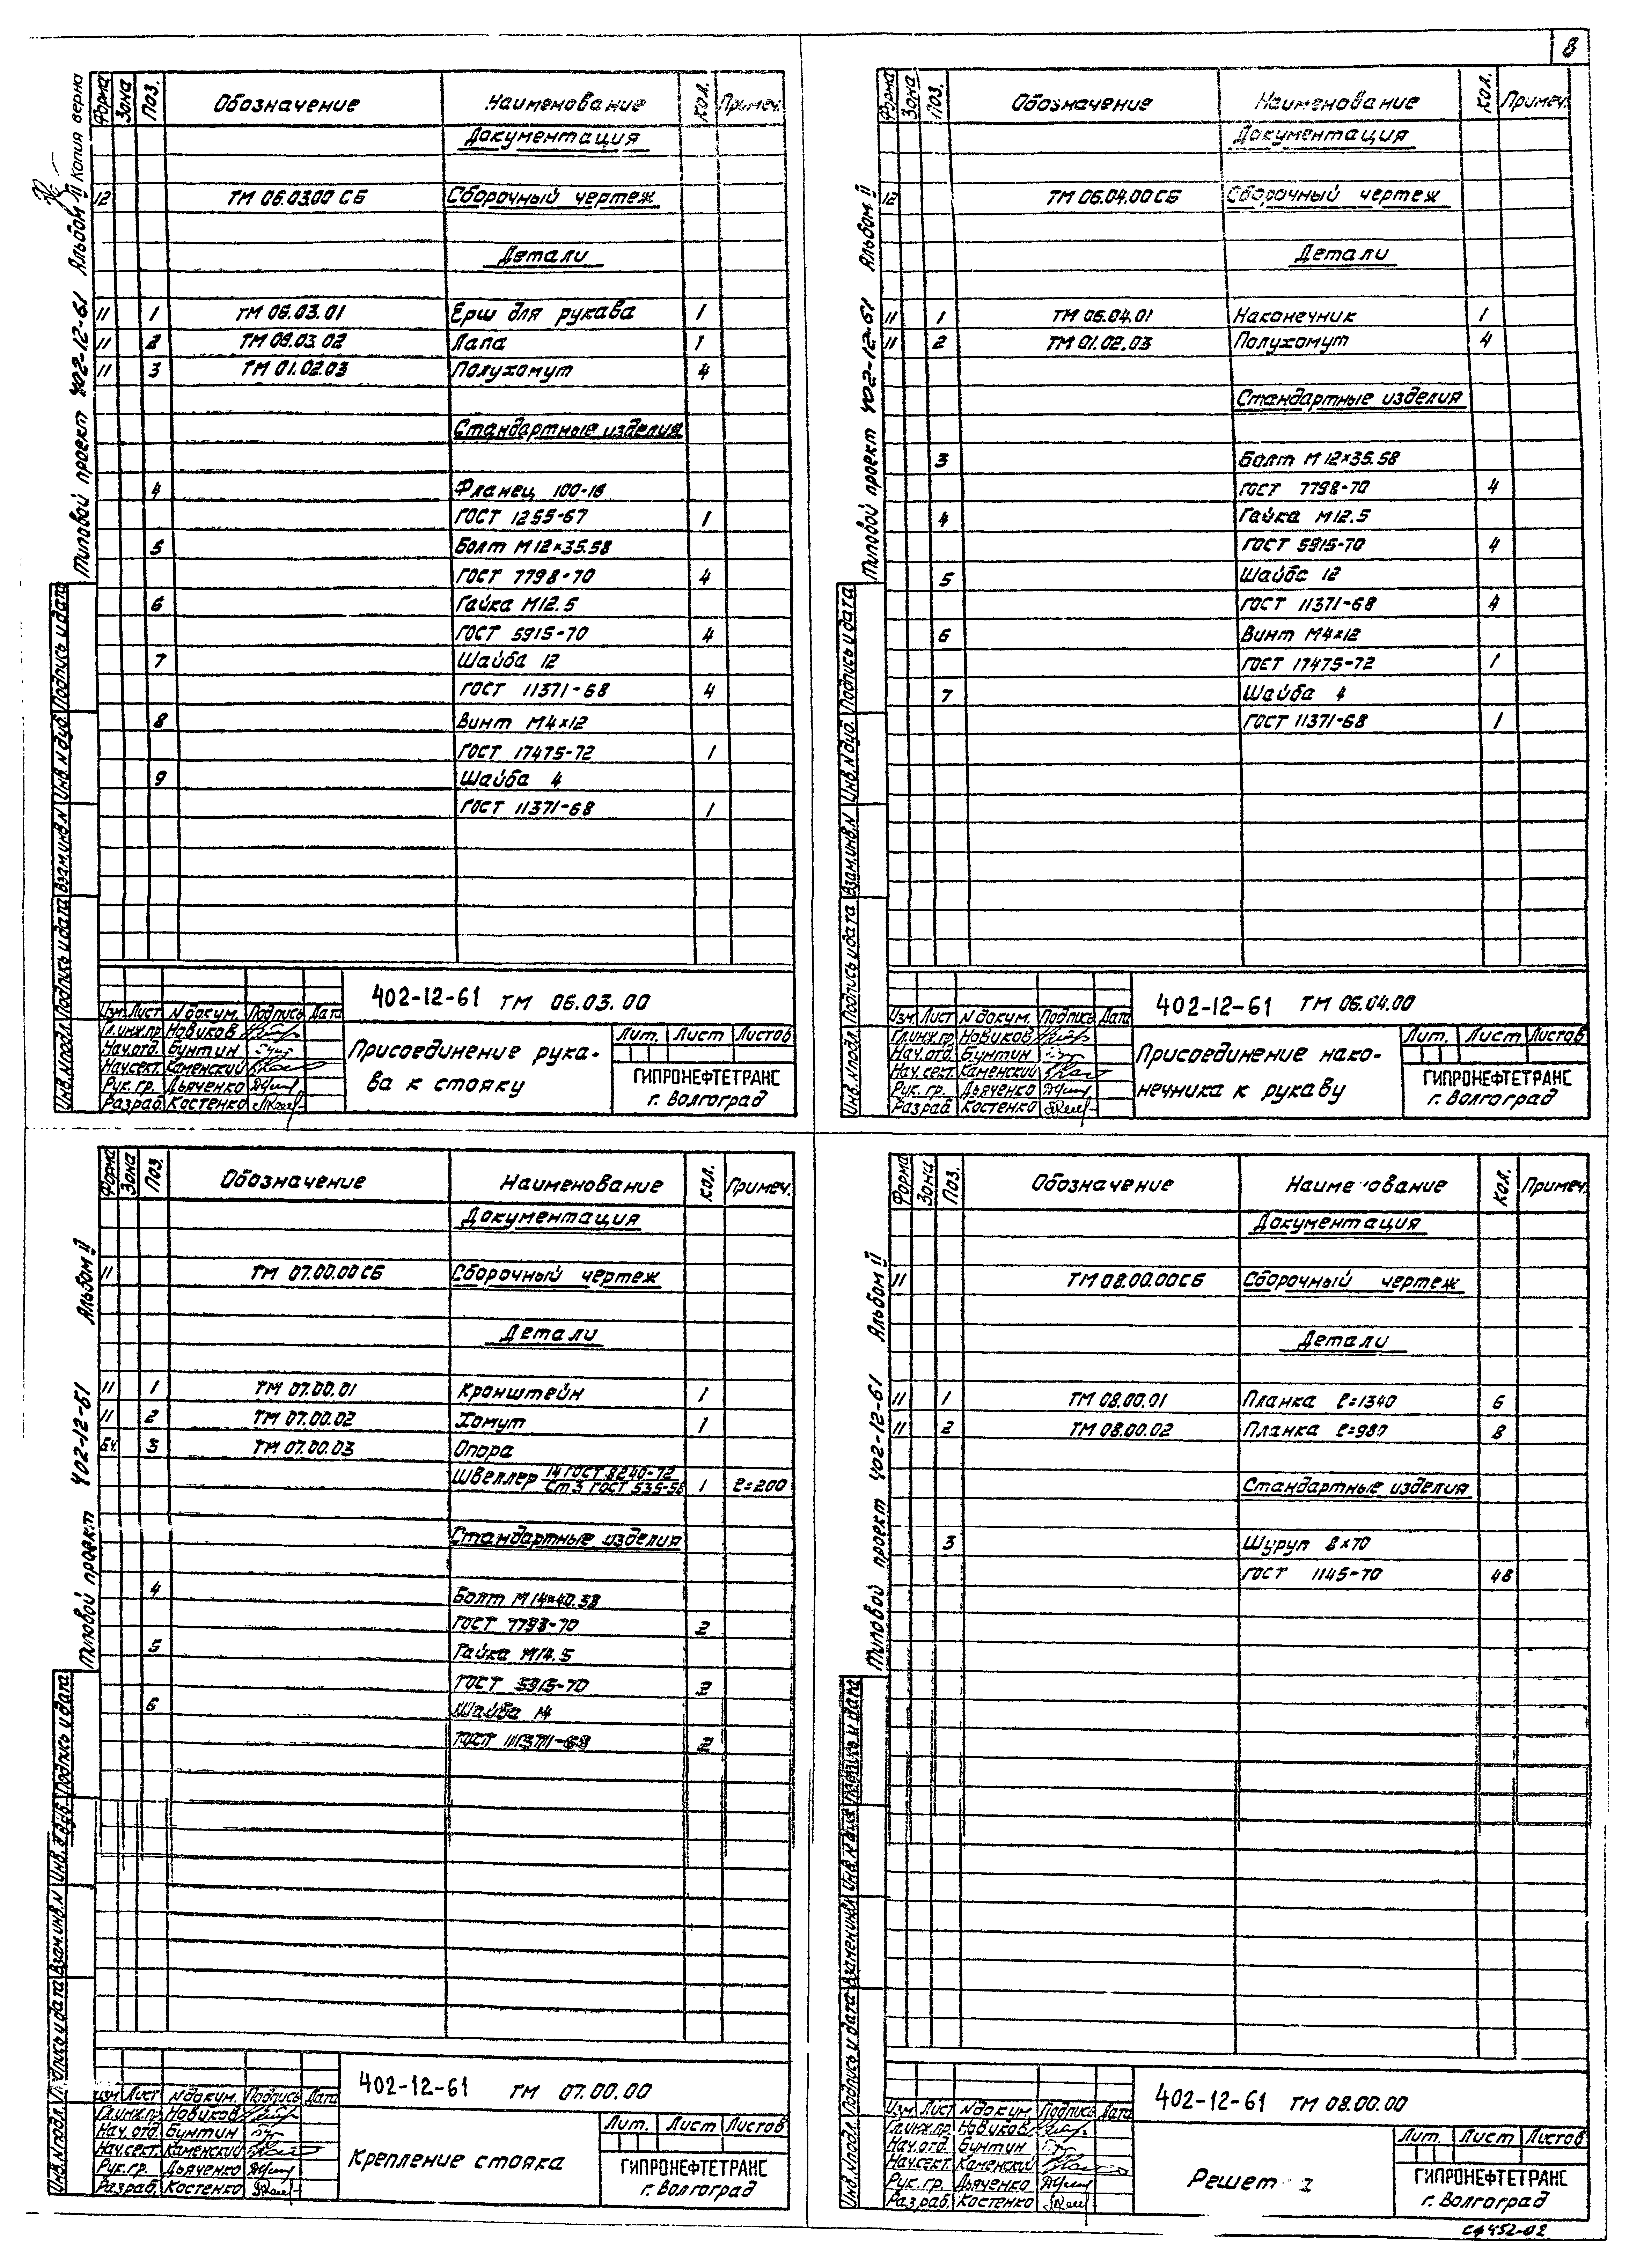 8
Копия верна
Типовой проект 402-12-61 Альбом II
Форма Зона Поз. Обозначение Наименование Кол. Примеч.
Документация
12 ТМ 06.03.00 СБ Сборочный чертеж
Детали
11 1 ТМ 06.03.01 Ерш для рукава 1
11 2 ТМ 06.03.02 Лапа 1
11 3 ТМ 01.02.03 Полухомут 4
Стандартные изделия
4 Фланец 100-16
ГОСТ 1255-67 1
5 Болт М12×35.58
ГОСТ 7798-70 4
6 Гайка М12.5
ГОСТ 5915-70 4
7 Шайба 12
ГОСТ 11371-68 4
8 Винт М4×12
ГОСТ 17475-72 1
9 Шайба 4
ГОСТ 11371-68 1
Инв. N подл. Подпись и дата Взам. инв. N Инв. N дуб. Подпись и дата
402-12-61 ТМ 06.03.00
Изм. Лист N докум. Подпись Дата
Гл.инж.пр. Новиков
Нач.отд. Бунтин
Нач.сект. Каменский
Рук. гр. Дьяченко
Разраб. Костенко
Присоединение рука-
ва к стояку
Лит. Лист Листов
ГИПРОНЕФТЕТРАНС
г. Волгоград
Типовой проект 402-12-61 Альбом II
Форма Зона Поз. Обозначение Наименование Кол. Примеч.
Документация
12 ТМ 06.04.00 СБ Сборочный чертеж
Детали
11 1 ТМ 06.04.01 Наконечник 1
11 2 ТМ 01.02.03 Полухомут 4
Стандартные изделия
3 Болт М12×35.58
ГОСТ 7798-70 4
4 Гайка М12.5
ГОСТ 5915-70 4
5 Шайба 12
ГОСТ 11371-68 4
6 Винт М4×12
ГОСТ 17475-72 1
7 Шайба 4
ГОСТ 11371-68 1
Инв. N подл. Подпись и дата Взам. инв. N Инв. N дуб. Подпись и дата
402-12-61 ТМ 06.04.00
Изм. Лист N докум. Подпись Дата
Гл.инж.гр. Новиков
Нач.отд. Бунтин
Нач.сект. Каменский
Рук. гр. Дьяченко
Разраб. Костенко
Присоединение нако-
нечника к рукаву
Лит. Лист Листов
ГИПРОНЕФТЕТРАНС
г. Волгоград
Типовой проект 402-12-61 Альбом II
Форма Зона Поз. Обозначение Наименование Кол. Примеч.
Документация
11 ТМ 07.00.00 СБ Сборочный чертеж
Детали
11 1 ТМ 07.00.01 Кронштейн 1
11 2 ТМ 07.00.02 Хомут 1
БЧ. 3 ТМ 07.00.03 Опора
Швеллер 14 ГОСТ 8240-72 / Ст.3 ГОСТ 535-58 1 ℓ=200
Стандартные изделия
4 Болт М14×40.58
ГОСТ 7798-70 2
5 Гайка М14.5
ГОСТ 5915-70 2
6 Шайба 14
ГОСТ 11371-68 2
Инв. N подл. Подпись и дата Взам. инв. N Инв. N дуб. Подпись и дата
402-12-61 ТМ 07.00.00
Изм. Лист N докум. Подпись Дата
Гл.инж.пр. Новиков
Нач. отд. Бунтин
Нач.сект. Каменский
Рук.гр. Дьяченко
Разраб. Костенко
Крепление стояка
Лит. Лист Листов
ГИПРОНЕФТЕТРАНС
г. Волгоград
Типовой проект 402-12-61 Альбом II
Форма Зона Поз. Обозначение Наименование Кол. Примеч.
Документация
11 ТМ 08.00.00 СБ Сборочный чертеж
Детали
11 1 ТМ 08.00.01 Планка ℓ=1340 6
11 2 ТМ 08.00.02 Планка ℓ=980 8
Стандартные изделия
3 Шуруп 8×70
ГОСТ 1145-70 48
Инв. N подл. Подпись и дата Взамен инв. N Инв. N дубл. Подпись и дата
402-12-61 ТМ 08.00.00
Изм. Лист N докум. Подпись Дата
Гл.инж.пр. Новиков
Нач.отд. Бунтин
Нач.сект. Каменский
Рук.гр. Дьяченко
Разраб. Костенко
Лит. Лист Листов
ГИПРОНЕФТЕТРАНС
г. Волгоград
СФ 452-02